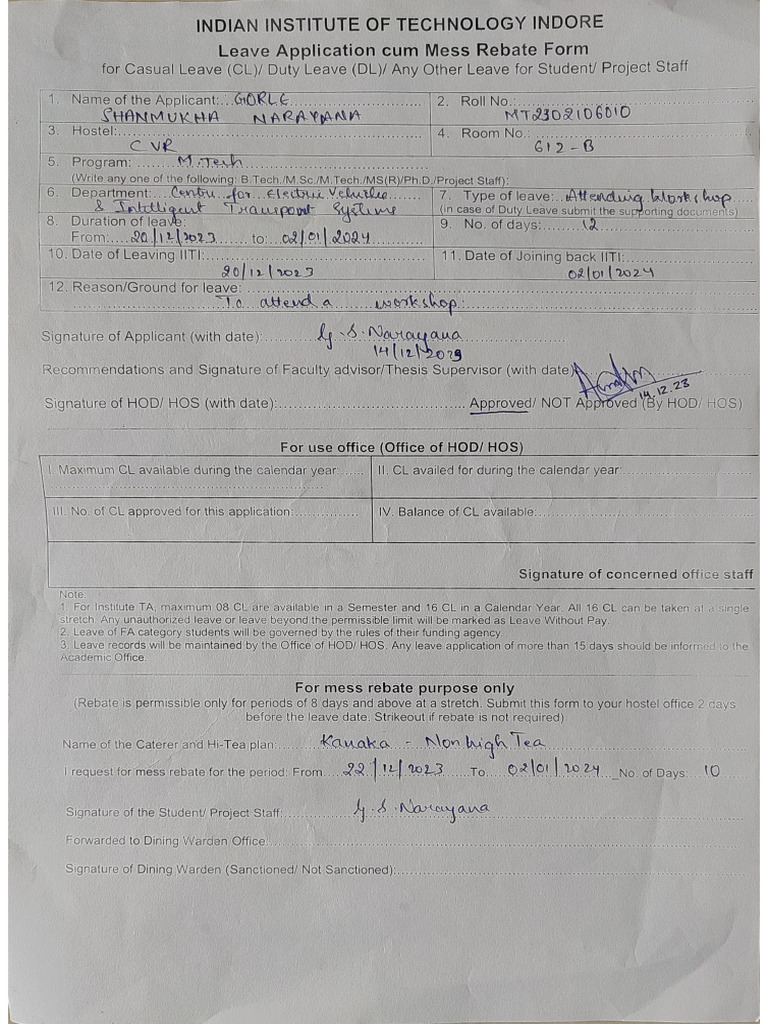 INDIAN INSTITUTE OF TECHNOLOGY INDORE
Leave Application cum Mess Rebate Form
for Casual Leave (CL)/ Duty Leave (DL)/ Any Other Leave for Student/ Project Staff
1. Name of the Applicant: GORLE
SHANMUKHA NARAYANA
2. Roll No.:
MT2302106010
3. Hostel:
CVR
4. Room No.:
612-B
5. Program: M.Tech
(Write any one of the following: B.Tech./M.Sc./M.Tech./MS(R)/Ph.D./Project Staff):
6. Department: Centre for Electric Vehicle
& Intelligent Transport Systems
7. Type of leave: Attending Workshop
(in case of Duty Leave submit the supporting documents)
8. Duration of leave:
From: 20/12/2023 to: 02/01/2024
9. No. of days: 12
10. Date of Leaving IITI:
20/12/2023
11. Date of Joining back IITI:
02/01/2024
12. Reason/Ground for leave:
To attend a workshop.
Signature of Applicant (with date): G.S.Narayana
14/12/2023
Recommendations and Signature of Faculty advisor/Thesis Supervisor (with date)
14.12.23
Signature of HOD/ HOS (with date): Approved/ NOT Approved (By HOD/ HOS)
For use office (Office of HOD/ HOS)
I. Maximum CL available during the calendar year:
II. CL availed for during the calendar year:
III. No. of CL approved for this application:
IV. Balance of CL available:
Signature of concerned office staff
Note:
1. For Institute TA, maximum 08 CL are available in a Semester and 16 CL in a Calendar Year. All 16 CL can be taken at a single
stretch. Any unauthorized leave or leave beyond the permissible limit will be marked as Leave Without Pay.
2. Leave of FA category students will be governed by the rules of their funding agency.
3. Leave records will be maintained by the Office of HOD/ HOS. Any leave application of more than 15 days should be informed to the
Academic Office.
For mess rebate purpose only
(Rebate is permissible only for periods of 8 days and above at a stretch. Submit this form to your hostel office 2 days
before the leave date. Strikeout if rebate is not required)
Name of the Caterer and Hi-Tea plan: Kanaka - Non high Tea
I request for mess rebate for the period: From 22/12/2023 To 02/01/2024 No. of Days: 10
Signature of the Student/ Project Staff: G.S.Narayana
Forwarded to Dining Warden Office
Signature of Dining Warden (Sanctioned/ Not Sanctioned):